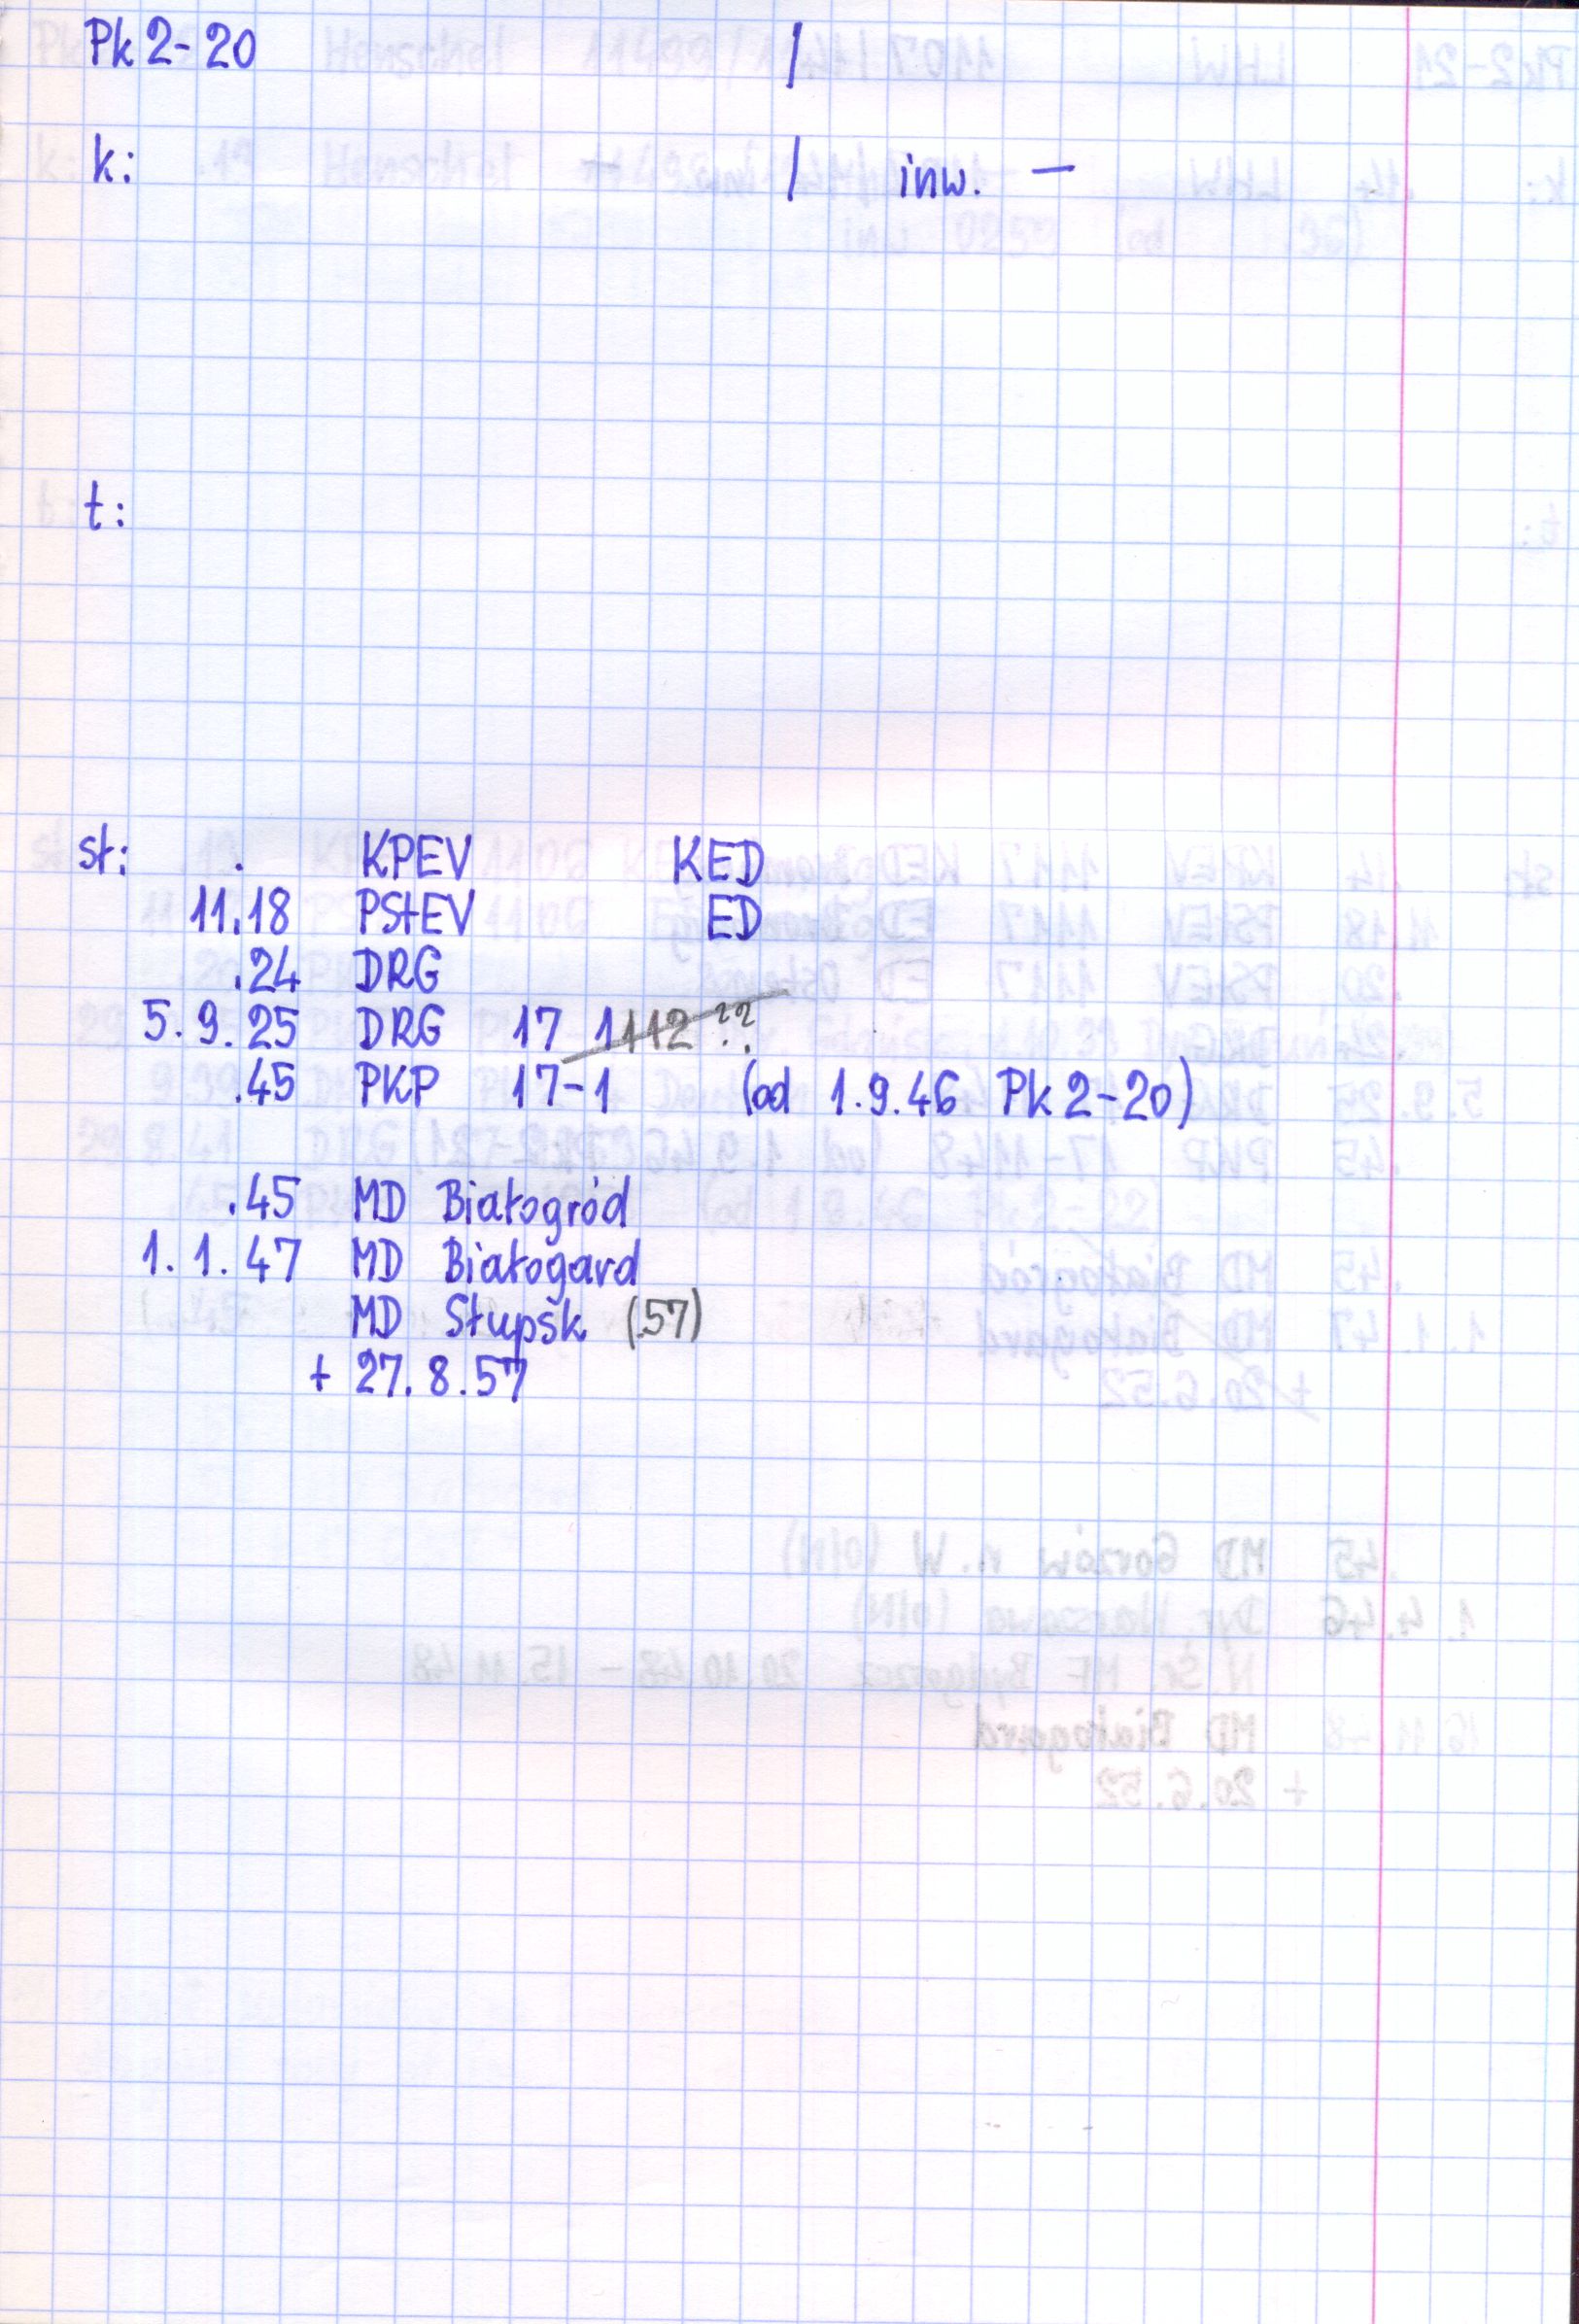 Pk 2-20 /
k: / inw. —
t:
st: . KPEV KED
11.18 PStEV ED
.24 DRG
5.9.25 DRG 17 1112 ??
.45 PKP 17-1 (od 1.9.46 Pk 2-20)
.45 MD Białogród
1.1.47 MD Białogard
MD Słupsk (.57)
+ 27.8.57